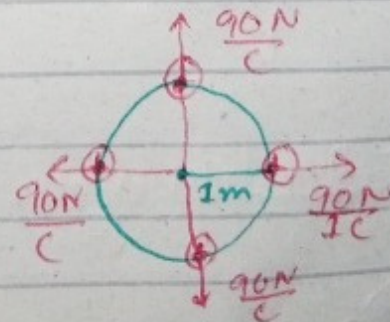 90N
C
90N
C
1m
90N
1C
90N
C